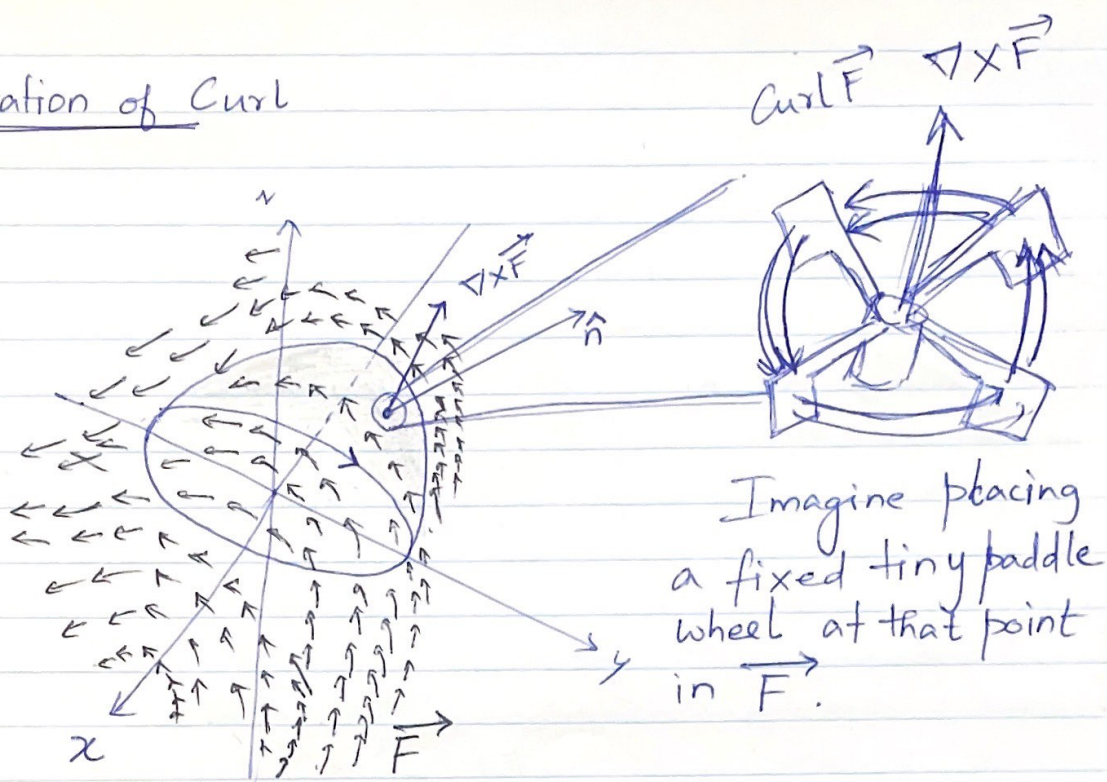 ation of Curl
Curl F⃗
∇×F⃗
z
∇×F⃗
n̂
Imagine placing
a fixed tiny paddle
wheel at that point
in F⃗.
y
x
F⃗